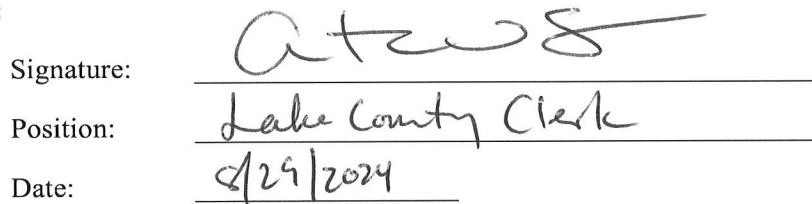 Signature:
Position: Lake County Clerk
Date: 8/29/2024